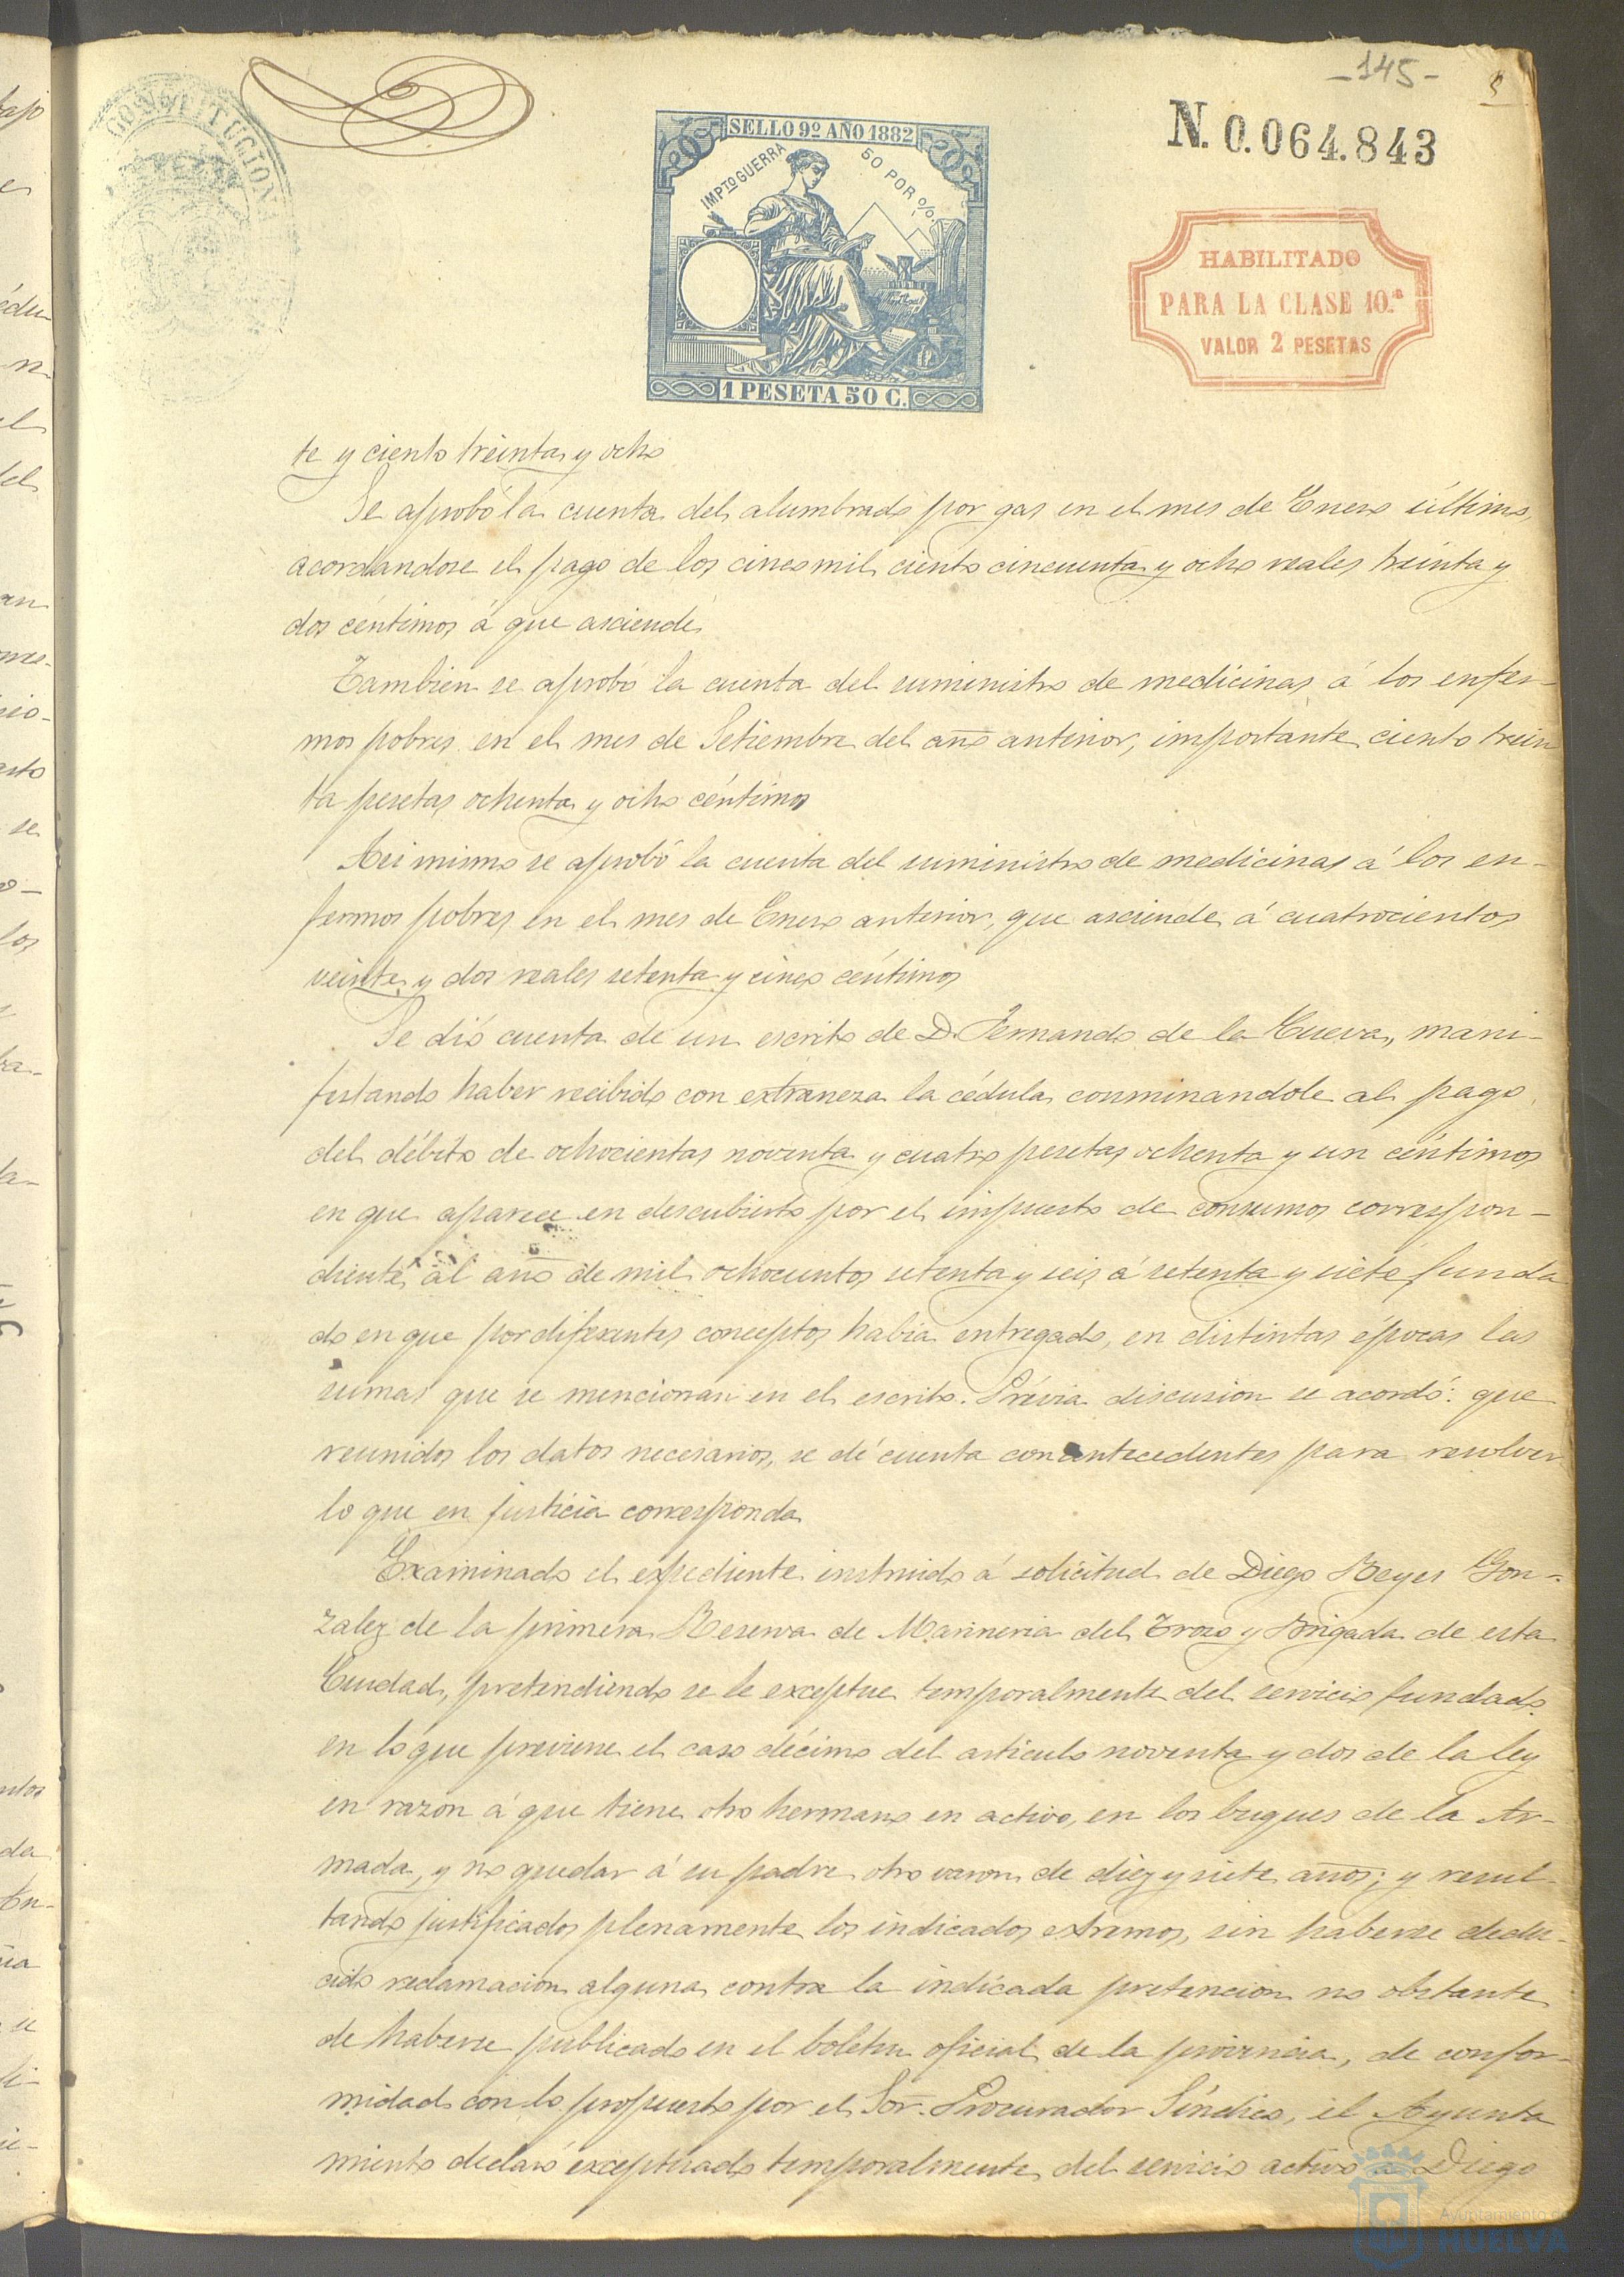 -145-
CONSTITUCION
SELLO 9º AÑO 1882
IMPTO GUERRA 50 POR %
1 PESETA 50 C.
N. 0.064.843
HABILITADO
PARA LA CLASE 10.ª
VALOR 2 PESETAS
te y ciento treinta y ocho
Se aprobó la cuenta del alumbrado por gas en el mes de Enero último,
acordandose el pago de los cinco mil ciento cincuenta y ocho reales treinta y
dos céntimos á que asciende.
Tambien se aprobó la cuenta del suministro de medicinas á los enfer-
mos pobres en el mes de Setiembre del año anterior, importante ciento trein
ta pesetas ochenta y ocho céntimos
Asi mismo se aprobó la cuenta del suministro de medicinas á los en-
fermos pobres en el mes de Enero anterior, que asciende á cuatrocientos
veinte y dos reales setenta y cinco céntimos
Se dió cuenta de un escrito de D. Fernando de la Cueva, mani-
festando haber recibido con extraneza la cédula conminandole al pago
del débito de ochocientas noventa y cuatro pesetas ochenta y un céntimos
en que aparece en descubierto por el impuesto de consumos correspon-
diente al año de mil ochocientos setenta y seis á setenta y siete, funda
do en que por diferentes conceptos habia entregado, en distintas épocas las
sumas que se mencionan en el escrito. Prévia discusion se acordó: que
reunidos los datos necesarios, se dé cuenta con antecedentes para resolver
lo que en justicia corresponda
Examinado el expediente instruido á solicitud de Diego Reyes Gon-
zalez de la primera Reserva de Marineria del Trozo y Brigada de esta
Ciudad, pretendiendo se le exceptue temporalmente del servicio fundado
en lo que previene el caso décimo del articulo noventa y dos de la ley
en razon á que tiene otro hermano en activo, en los buques de la Ar-
mada, y no quedar á su padre otro varon de diez y siete años; y resul-
tando justificados plenamente los indicados extremos, sin haberse dedu-
cido reclamacion alguna contra la indicada pretencion no obstante
de haberse publicado en el boletin oficial de la provincia, de confor-
midad con lo propuesto por el Sor. Procurador Síndico, el Ayunta
miento declaró exceptuado temporalmente del servicio activo á Diego
Ayuntamiento de
HUELVA